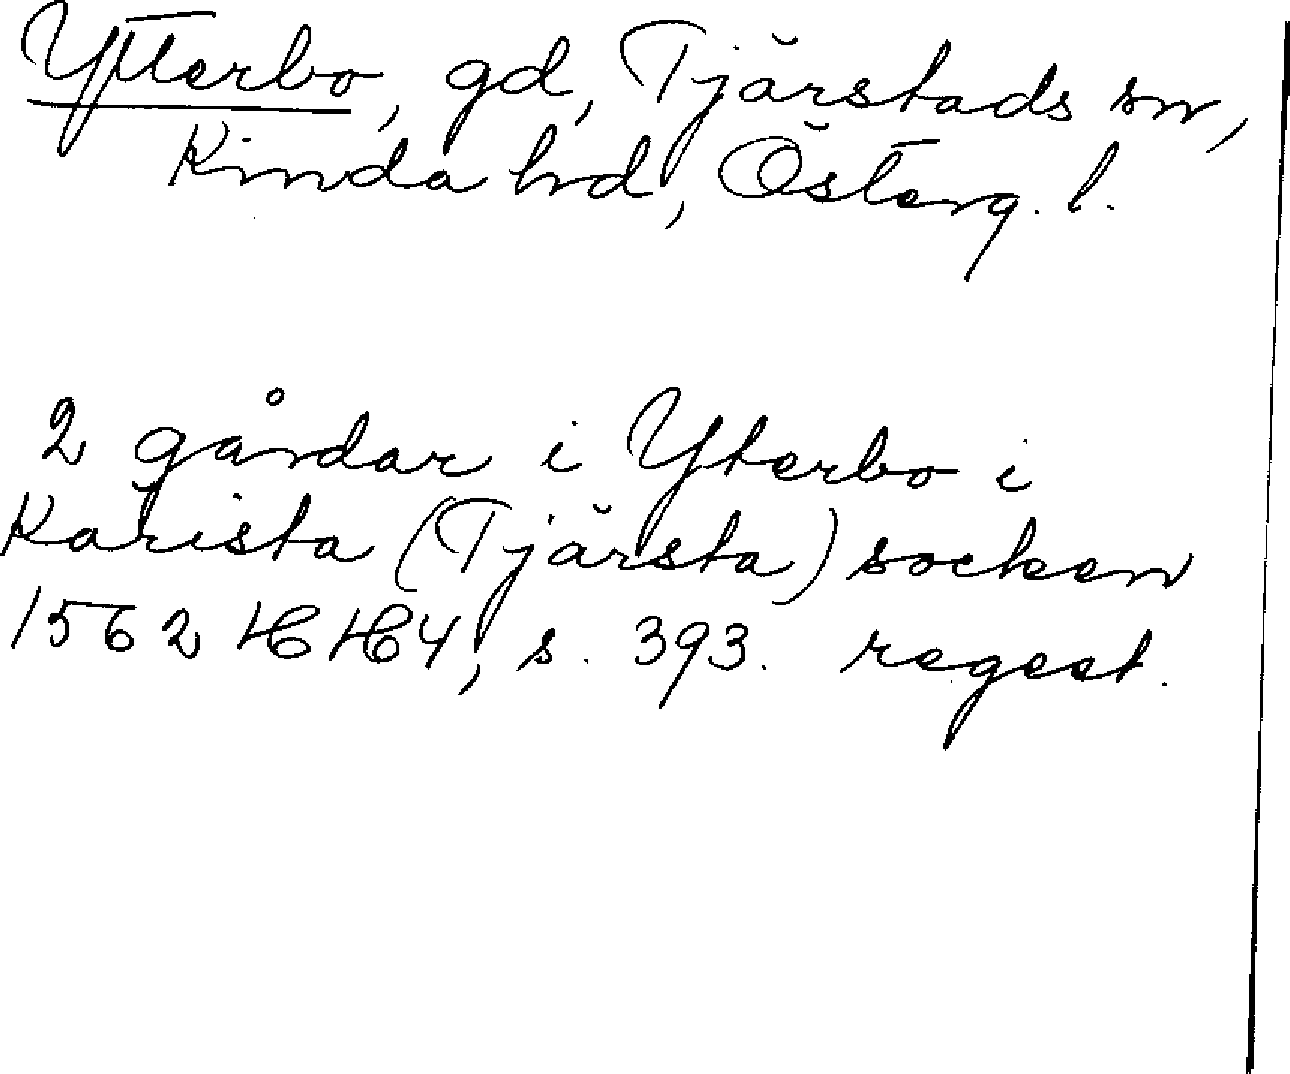 Ytterbo, gd, Tjärstads sn,
Kinda hd, Österg. l.
2 gårdar i Yterbo i
Kärista (Tjärsta) socken
1562 HH4, s. 393. regest.